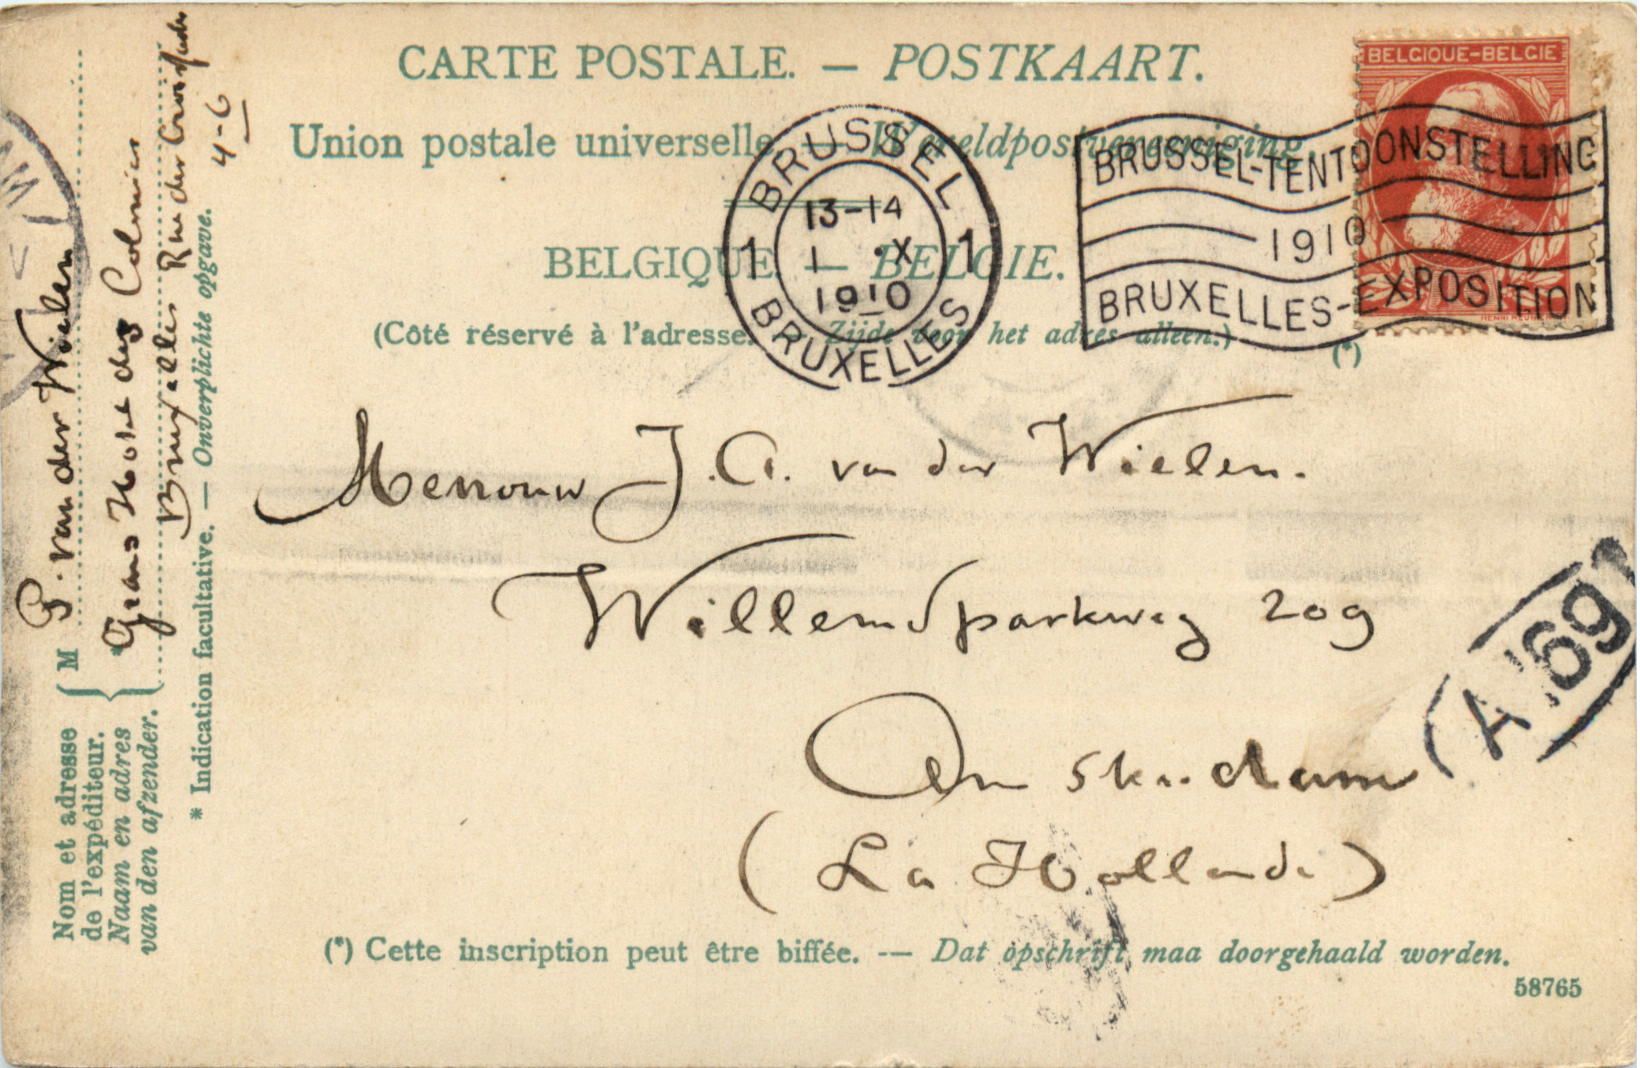 CARTE POSTALE. — POSTKAART.
Union postale universelle — Wereldpostvereeniging
BELGIQUE. — BELGIE.
(Côté réservé à l'adresse. Zijde voor het adres alleen.)
(*)
BELGIQUE-BELGIE
BRUSSEL
13-14
1 1 X 1
1910
BRUXELLES
BRUSSEL-TENTOONSTELLING
1910
BRUXELLES-EXPOSITION
Mevrouw J. A. van der Wielen.
Willemsparkweg 209
Amsterdam
(La Hollande)
A'69
(*) Cette inscription peut être biffée. — Dat opschrift maa doorgehaald worden.
58765
Nom et adresse
de l'expéditeur.
Naam en adres
van den afzender.
M P. van der Wielen
* Grand Hotel des Colonies
Bruxelles Rue des
4-6
* Indication facultative. — Onverplichte opgave.